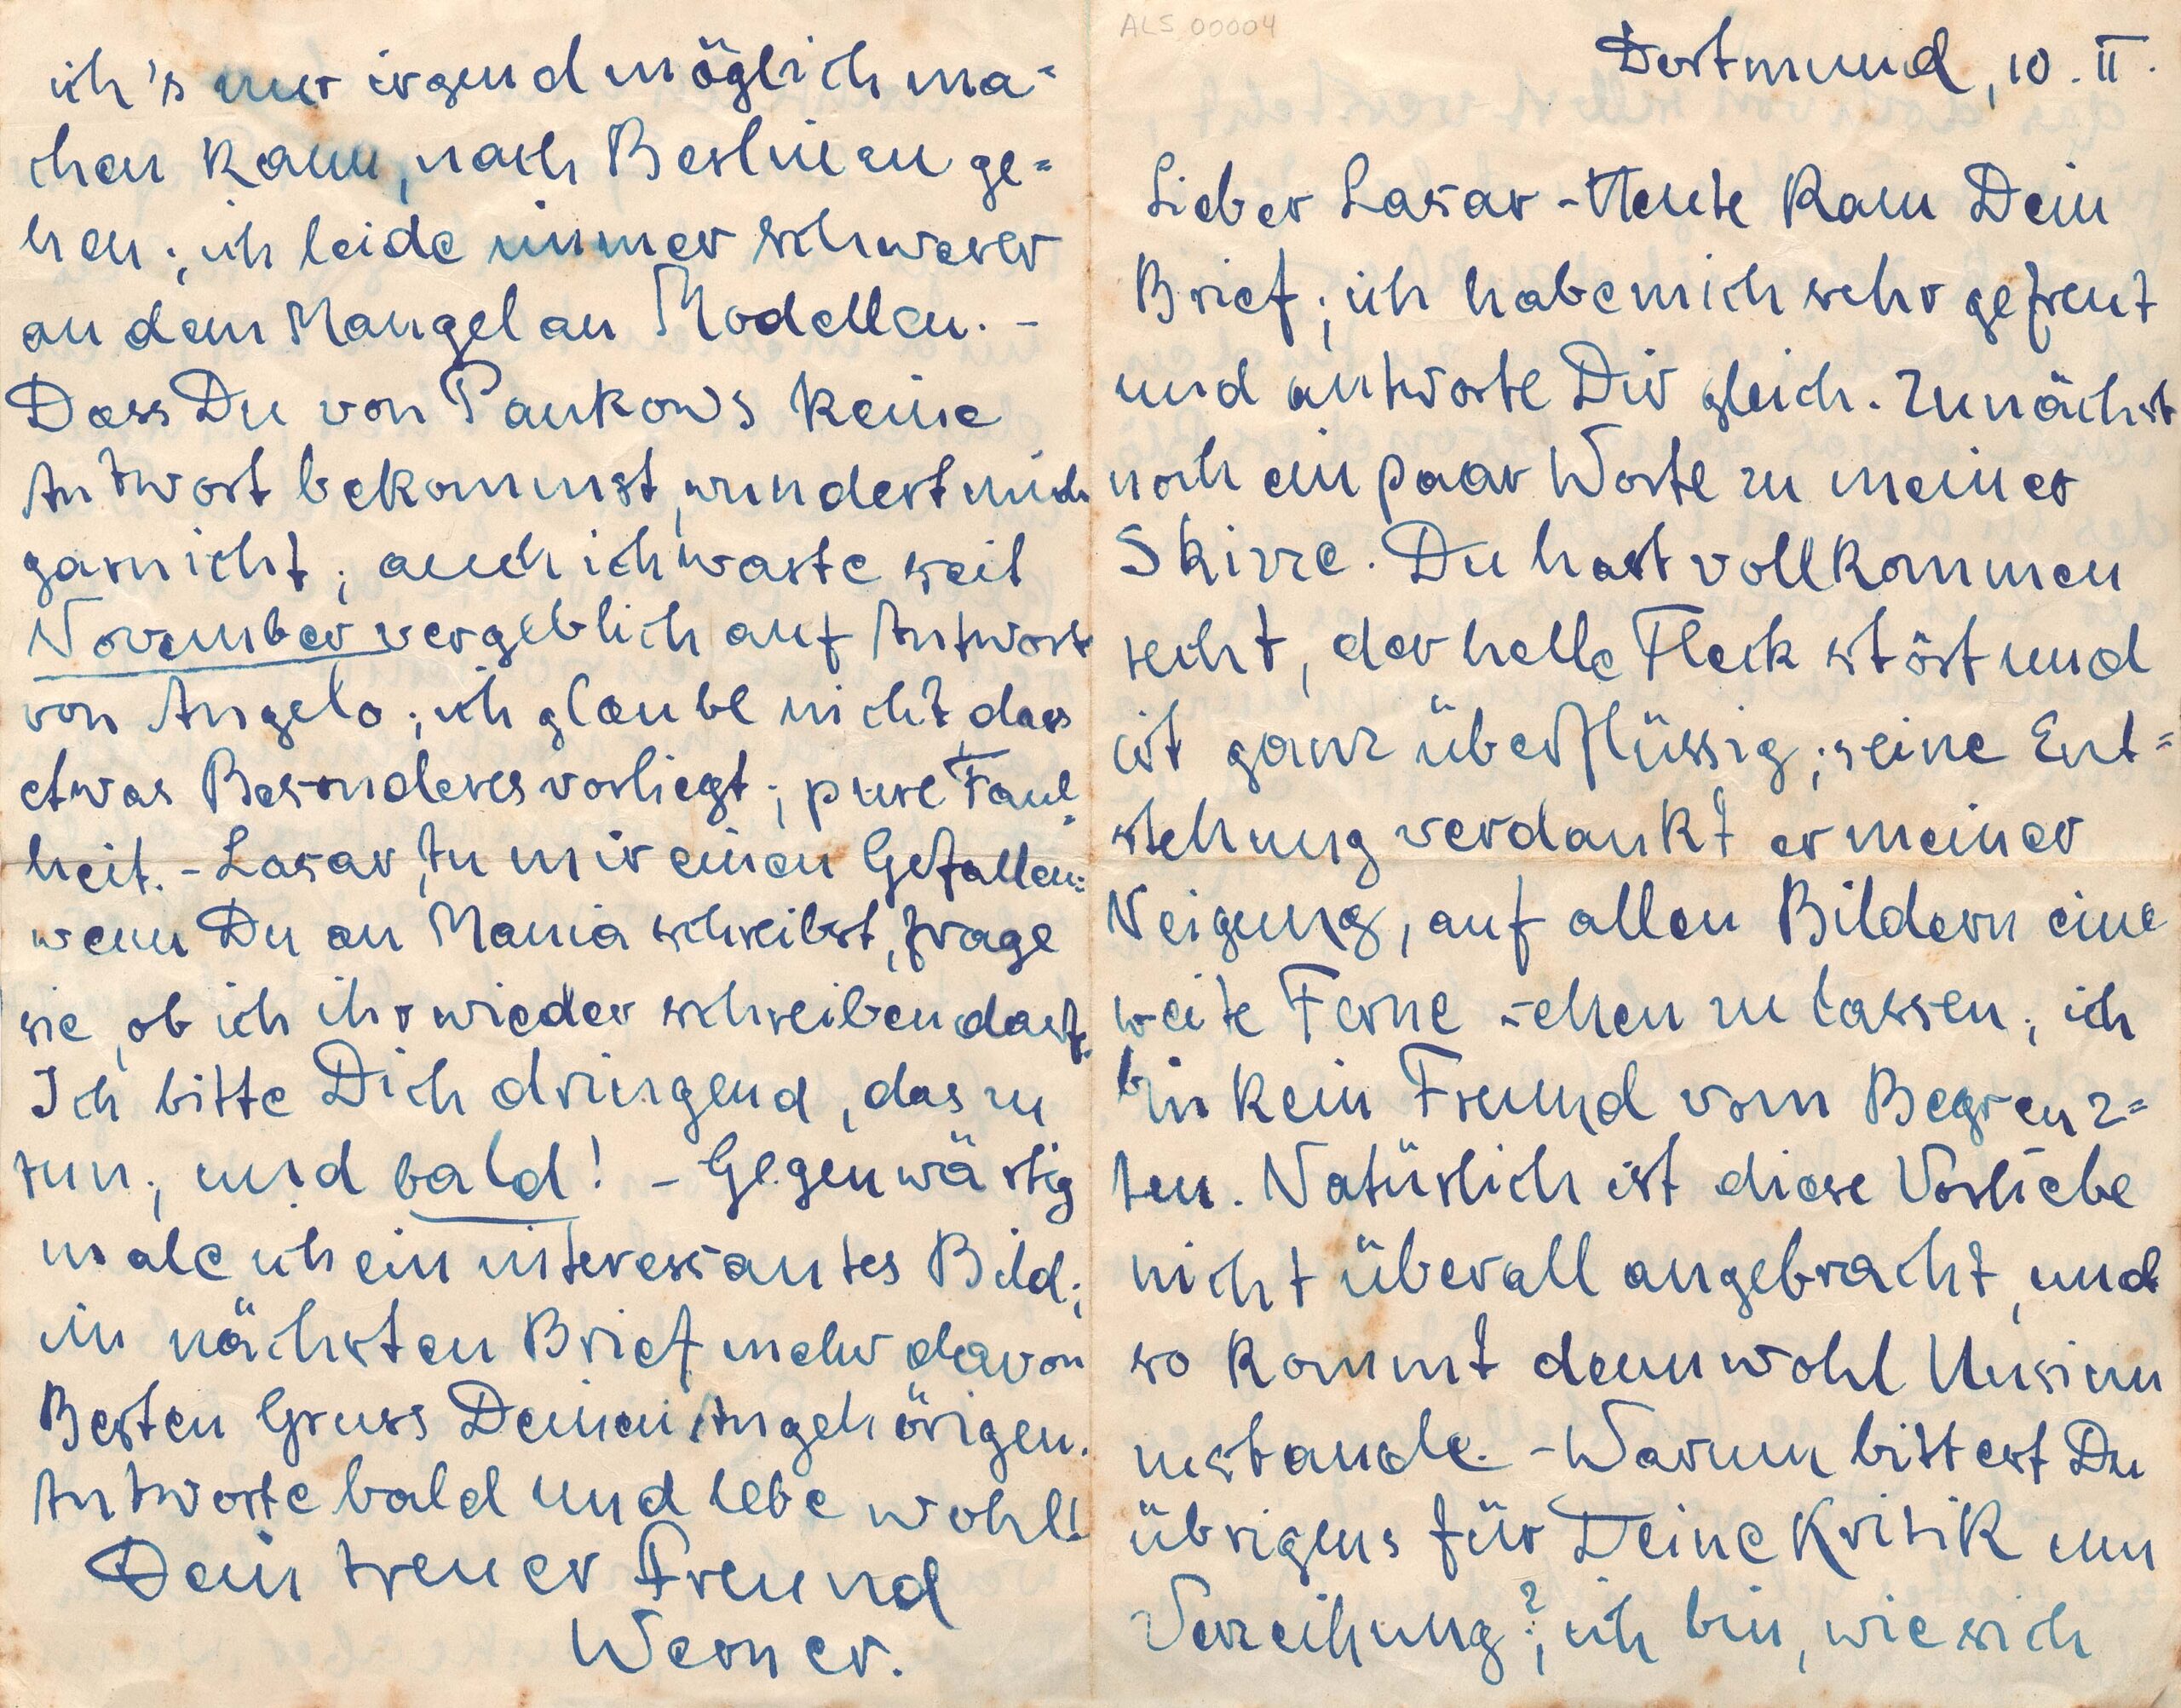 ALS 00004
Dortmund, 10. II.
Lieber Lasar - Heute kam Dein
Brief; ich habe mich sehr gefreut
und antworte Dir gleich. Zunächst
noch ein paar Worte zu meiner
Skizze. Du hast vollkommen
recht, der helle Fleck stört und
ist ganz überflüssig; seine Ent=
stehung verdankt er meiner
Neigung, auf allen Bildern eine
weite Ferne sehen zu lassen; ich
bin kein Freund vom Begrenz=
ten. Natürlich ist diese Vorliebe
nicht überall angebracht, und
so kommt denn wohl Unsinn
zustande. - Warum bittest Du
übrigens für Deine Kritik um
Verzeihung?; ich bin, wie sich
ich's nur irgend möglich ma=
chen kann, nach Berlin zu ge=
hen; ich leide immer schwerer
an dem Mangel an Modellen. -
Dass Du von Pankows keine
Antwort bekommst, wundert mich
garnicht; auch ich warte seit
November vergeblich auf Antwort
von Angelo; ich glaube nicht, dass
etwas Besonderes vorliegt; pure Faul=
heit. - Lasar, tu mir einen Gefallen:
wenn Du an Mania schreibst, frage
sie, ob ich ihr wieder schreiben darf.
Ich bitte Dich dringend, das zu
tun; und bald! - Gegenwärtig
male ich ein interessantes Bild;
im nächsten Brief mehr davon
Besten Gruss Deinen Angehörigen.
Antworte bald und lebe wohl!
Dein treuer Freund
Werner.